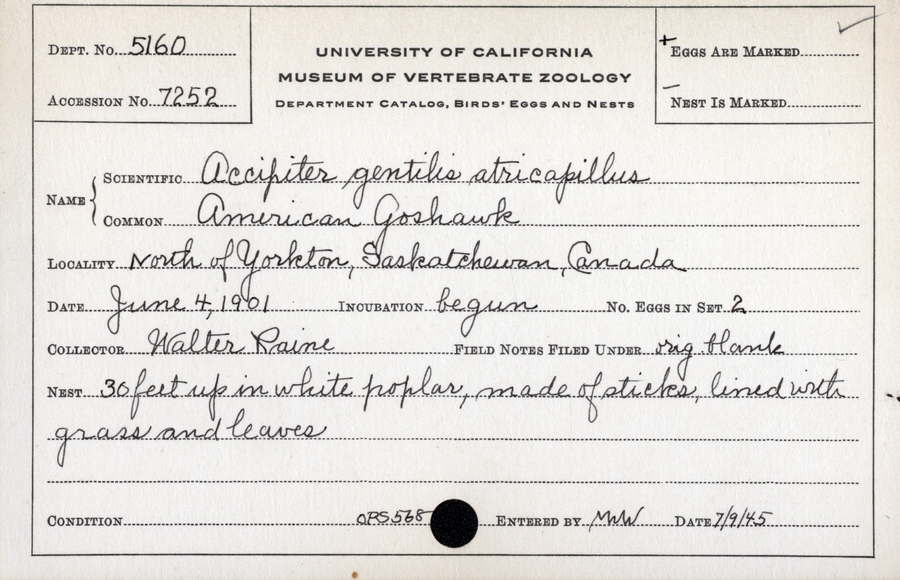 Dept. No. 5160
Accession No. 7252
UNIVERSITY OF CALIFORNIA
MUSEUM OF VERTEBRATE ZOOLOGY
Department Catalog, Birds' Eggs and Nests
+ Eggs Are Marked
− Nest Is Marked
Name { Scientific Accipiter gentilis atricapillus
Common American Goshawk
Locality North of Yorkton, Saskatchewan, Canada
Date June 4, 1901 Incubation begun No. Eggs in Set 2
Collector Walter Raine Field Notes Filed Under orig. blank
Nest 30 feet up in white poplar, made of sticks, lined with
grass and leaves
Condition ORS568 Entered by MWW Date 7/9/45